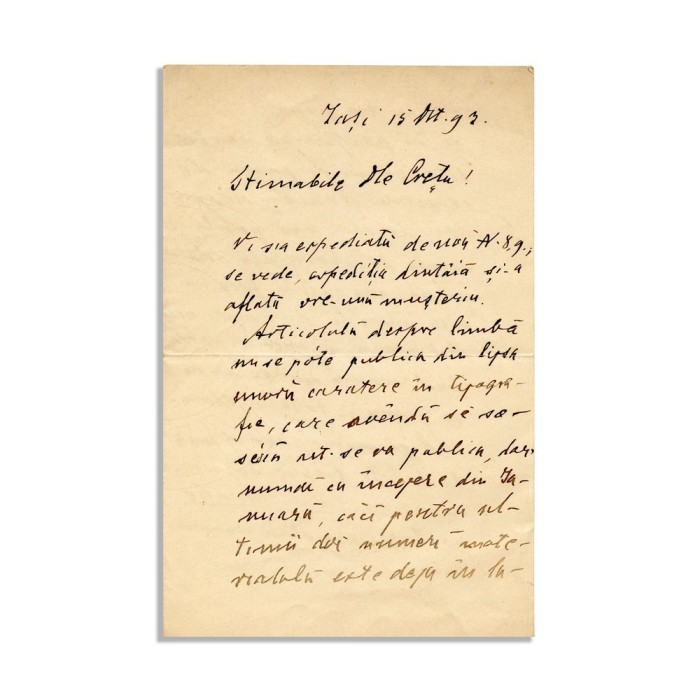 Iași 15 Oct. 93.
Stimabile Dle Crețu!
Vi s'a expediatŭ de noŭ N. 8, 9.;
se vede, expediția dintăiă și-a
aflatŭ vre-unŭ mușteriu.
Articolulŭ despre limbă
nu se póte publica din lipsa
unorŭ caractere în tipogra-
fie, care avêndŭ se so-
séscă se va publica, dar
numai cu începere din Ia-
nuarŭ, căci pentru ul-
timii doi numeri mate-
rialulŭ este deja în lu-